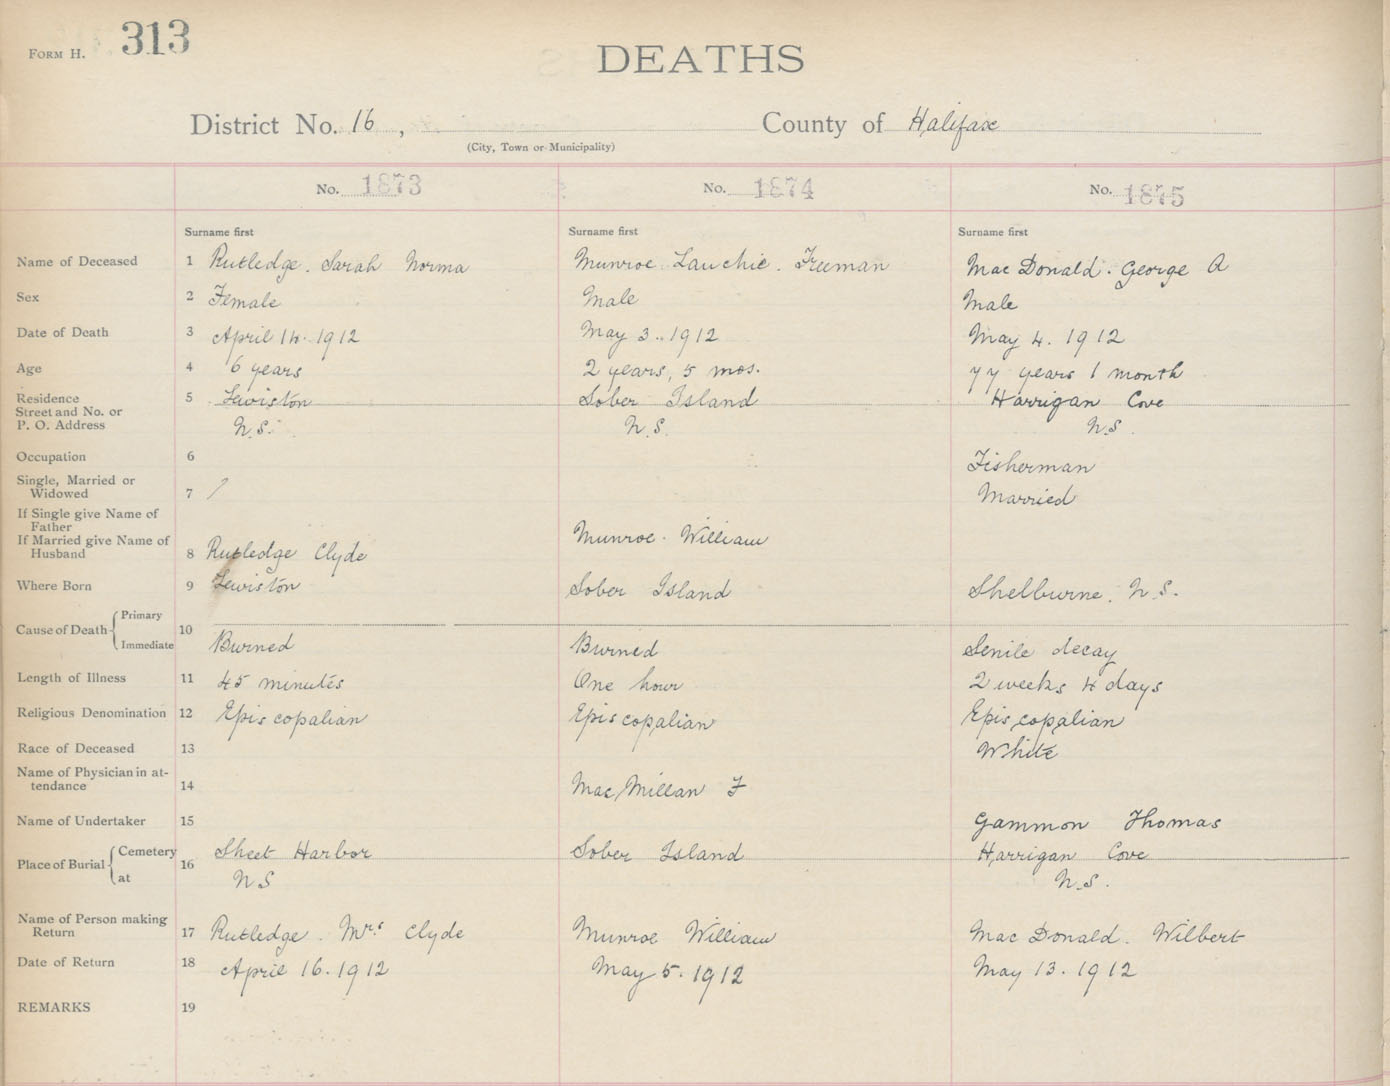 FORM H. 313
DEATHS
District No. 16, County of Halifax
(City, Town or Municipality)
No. 1873 No. 1874 No. 1875
Surname first Surname first Surname first
Name of Deceased 1 Rutledge. Sarah Norma Munroe Lauchie. Freeman Mac Donald. George A
Sex 2 Female Male Male
Date of Death 3 April 14. 1912 May 3. 1912 May 4. 1912
Age 4 6 years 2 years, 5 mos. 77 years 1 month
Residence 5 Lewiston Sober Island Harrigan Cove
Street and No. or
P. O. Address N.S. N.S. N.S.
Occupation 6 Fisherman
Single, Married or
Widowed 7 / Married
If Single give Name of
Father
If Married give Name of
Husband 8 Rutledge Clyde Munroe. William
Where Born 9 Lewiston Sober Island Shelburne. N.S.
Cause of Death Primary
10
Immediate Burned Burned Senile decay
Length of Illness 11 45 minutes One hour 2 weeks 4 days
Religious Denomination 12 Episcopalian Episcopalian Episcopalian
Race of Deceased 13 White
Name of Physician in at-
tendance 14 Mac Millan F
Name of Undertaker 15 Gammon Thomas
Place of Burial Cemetery 16 Sheet Harbor Sober Island Harrigan Cove
at N S N.S.
Name of Person making
Return 17 Rutledge. Mrs Clyde Munroe William Mac Donald. Wilbert
Date of Return 18 April 16. 1912 May 5. 1912 May 13. 1912
REMARKS 19